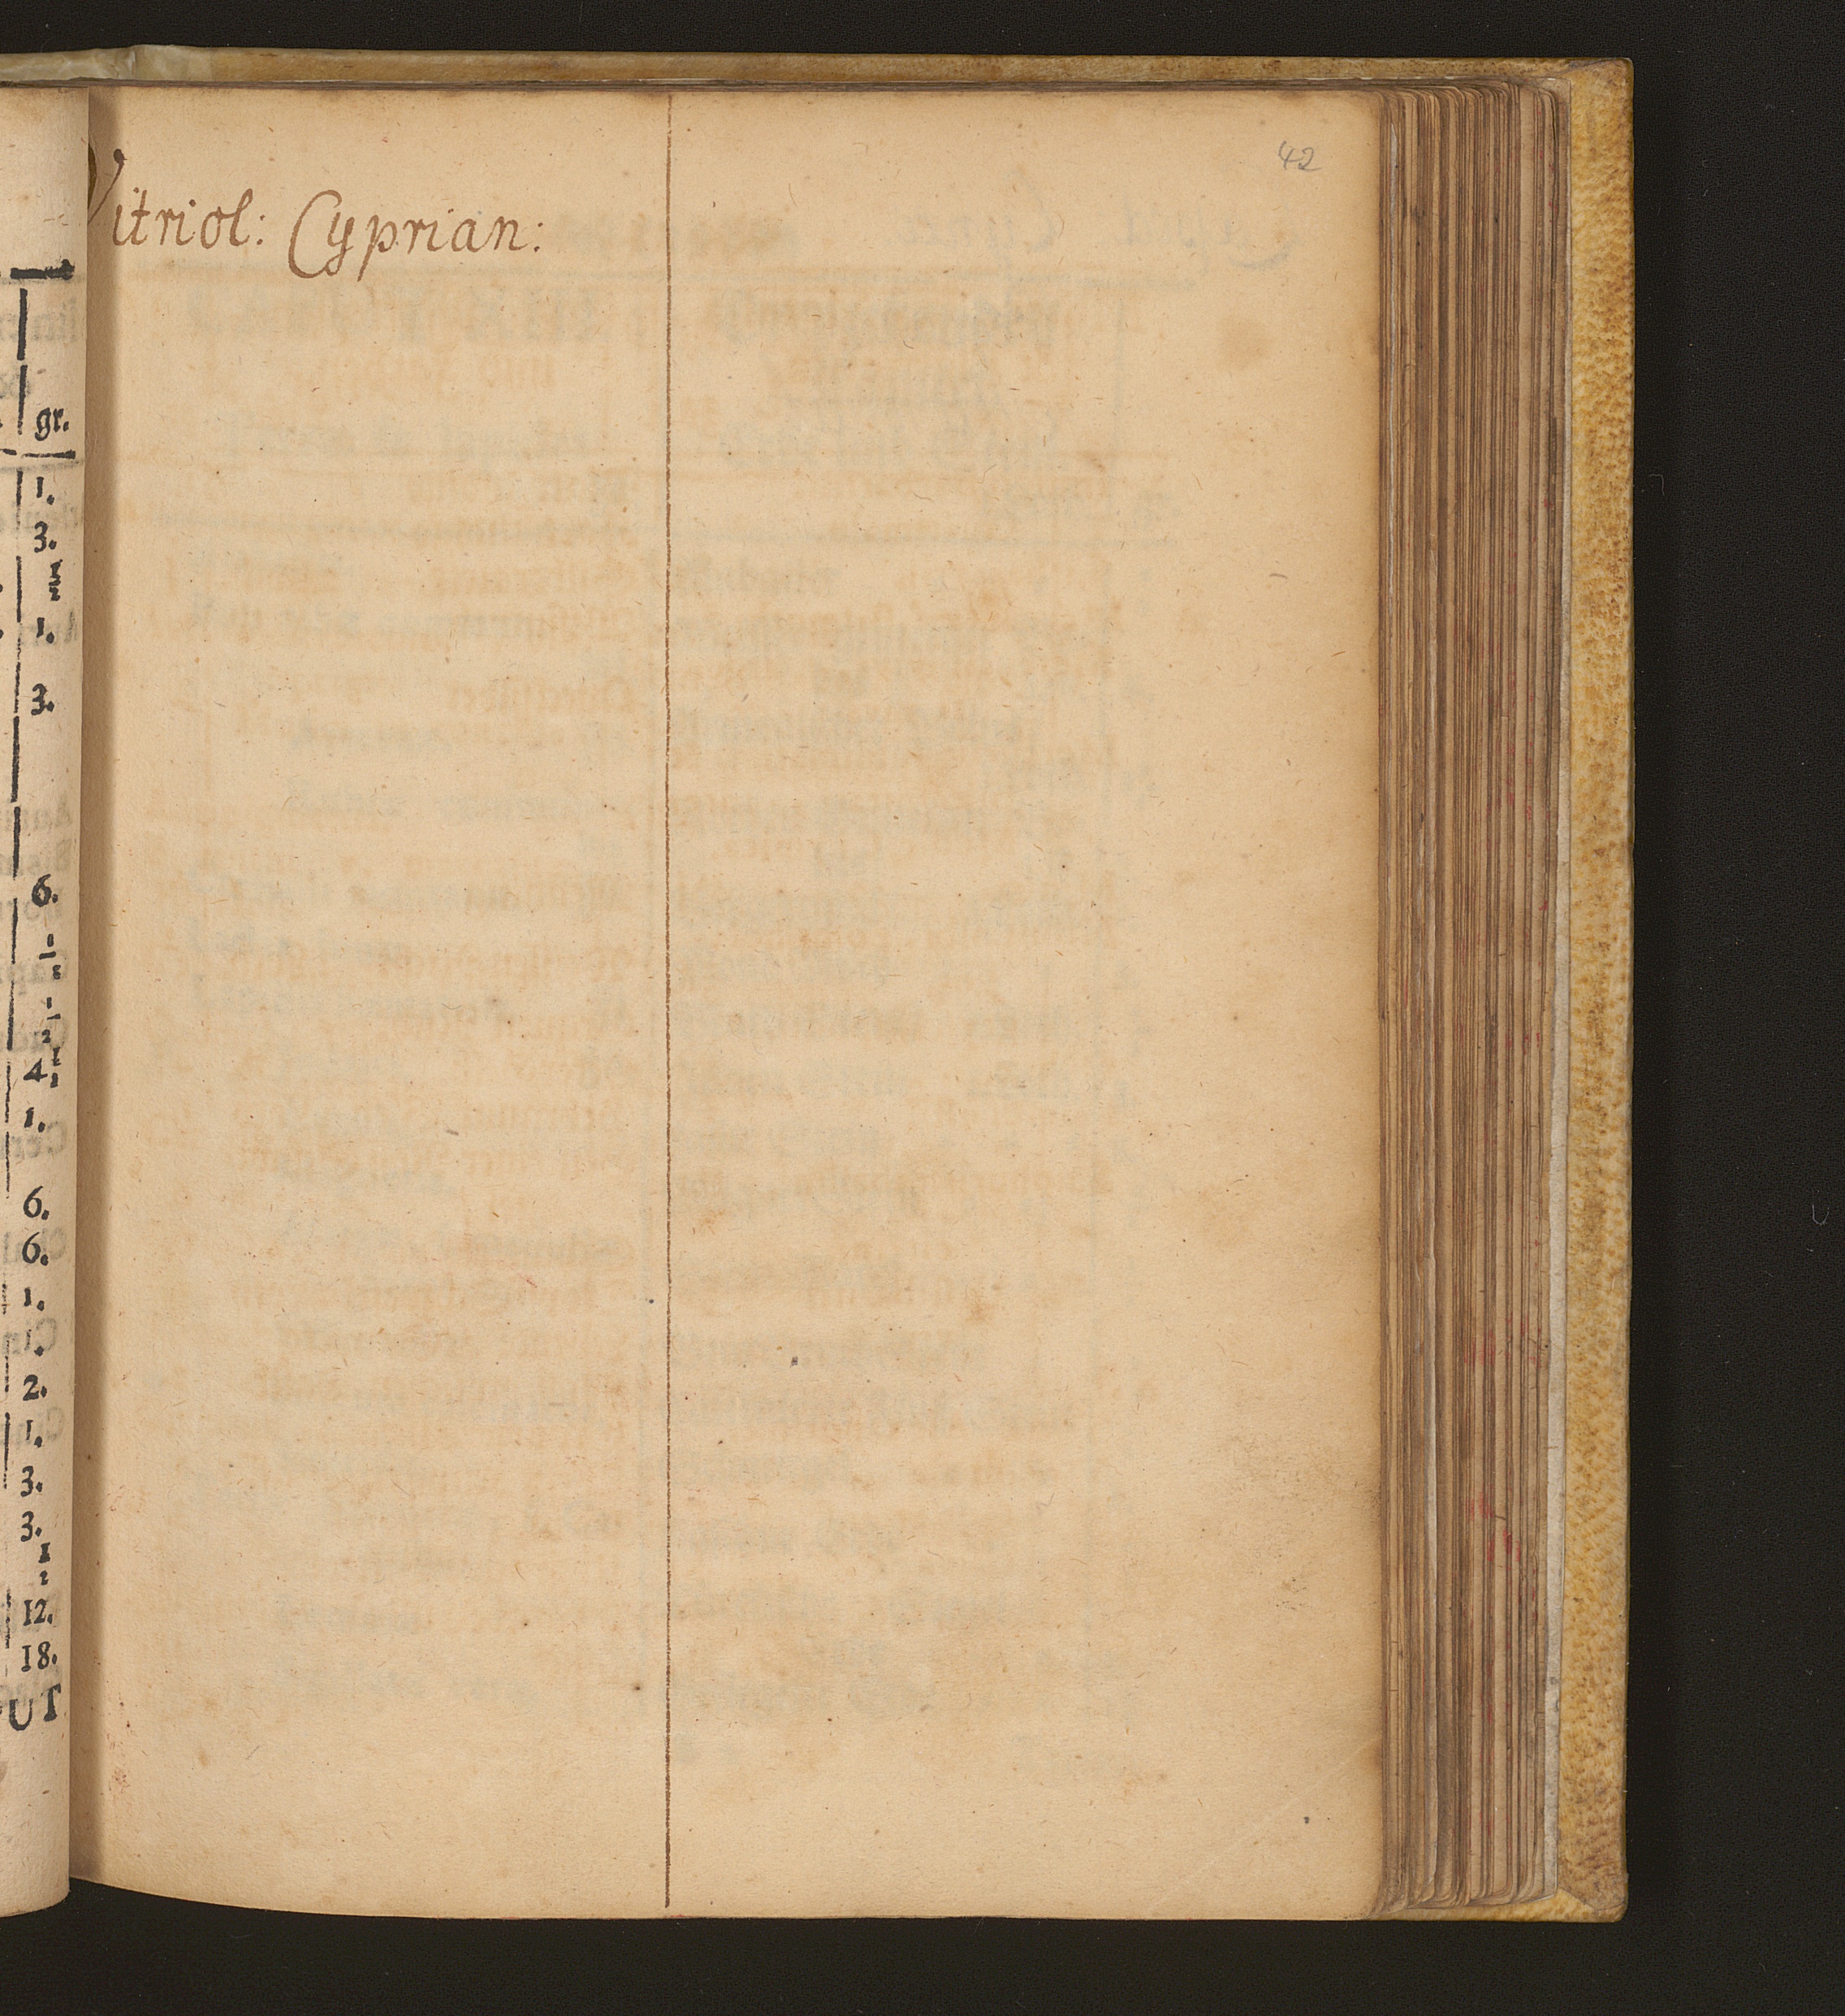 42
Vitriol: Cyprian:
gr.
1.
3.
1/2
1.
3.
6.
1/2
1/2
4 1/2
1.
6.
6.
1.
1.
2.
1.
3.
3.
1/2
12.
18.
UT